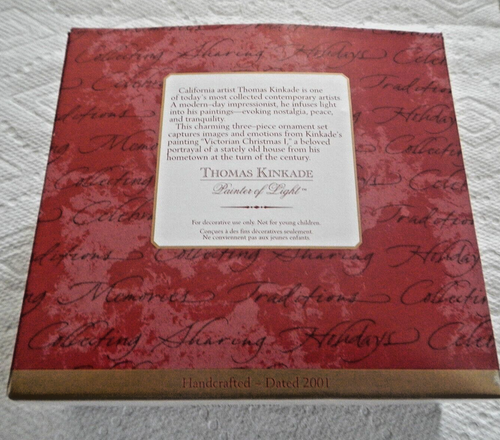 Collecting Sharing Holidays Celeb
California artist Thomas Kinkade is one
of today's most collected contemporary artists.
A modern-day impressionist, he infuses light
into his paintings—evoking nostalgia, peace,
and tranquility.
This charming three-piece ornament set
captures images and emotions from Kinkade's
painting "Victorian Christmas I," a beloved
portrayal of a stately old house from his
hometown at the turn of the century.
THOMAS KINKADE
Painter of Light™
For decorative use only. Not for young children.
Conçues à des fins décoratives seulement.
Ne conviennent pas aux jeunes enfants.
Traditions
ditions Collecting Sharing Holidays
g Memories Traditions Collectin
Collecting Sharing Holidays Celeb
Handcrafted - Dated 2001